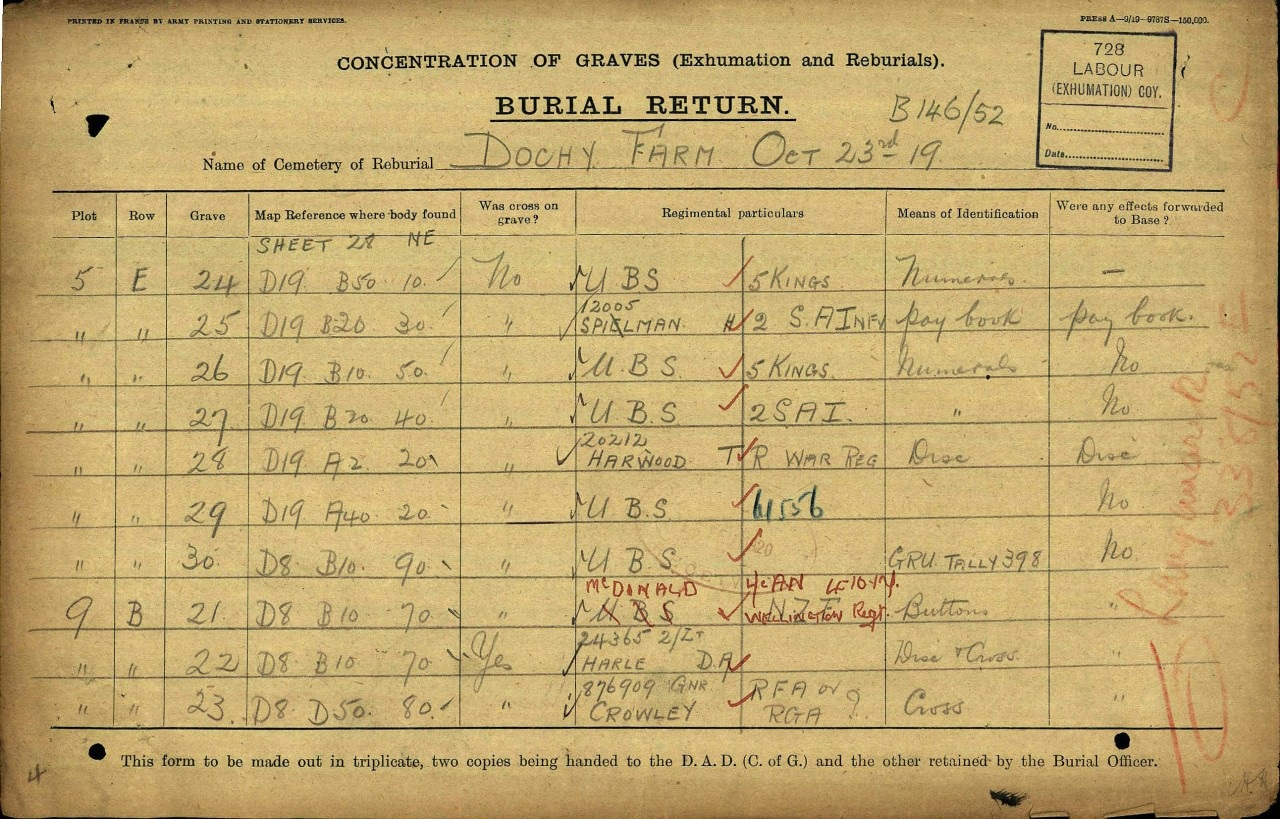 PRINTED IN FRANCE BY ARMY PRINTING AND STATIONERY SERVICES.
PRESS A—9/19—9787S—150,000.
CONCENTRATION OF GRAVES (Exhumation and Reburials).
BURIAL RETURN.
B146/52
728
LABOUR
(EXHUMATION) COY.
No.
Date
Name of Cemetery of Reburial DOCHY FARM OCT 23rd 19
Plot Row Grave Map Reference where body found Was cross on grave? Regimental particulars Means of Identification Were any effects forwarded to Base?
SHEET 28 NE
5 E 24 D19 B50 10 No U BS 5 KINGS Numerals —
" " 25 D19 B20 30 " 12005 SPIELMAN H 2 S.A INFY pay book pay book.
" " 26 D19 B10 50 " U.B.S. 5 KINGS. Numerals No
" " 27 D19 B20 40 " U.B.S 2 S A I. " No
" " 28 D19 A2 20 " 20212 HARWOOD T R WAR REG Disc Disc
" " 29 D19 A40 20 " U B.S. No
" " 30 D8 B10 90 " U B.S GRU TALLY 398 No
McDONALD 4-10-17.
9 B 21 D8 B10 70 " U B S NZF WELLINGTON Regt. Buttons "
" " 22 D8 B10 70 Yes 24365 2/Lt HARLE D.A Disc & Cross "
" " 23 D8 D50 80 " 876909 GNR CROWLEY RFA or RGA ? Cross "
This form to be made out in triplicate, two copies being handed to the D. A. D. (C. of G.) and the other retained by the Burial Officer.
4